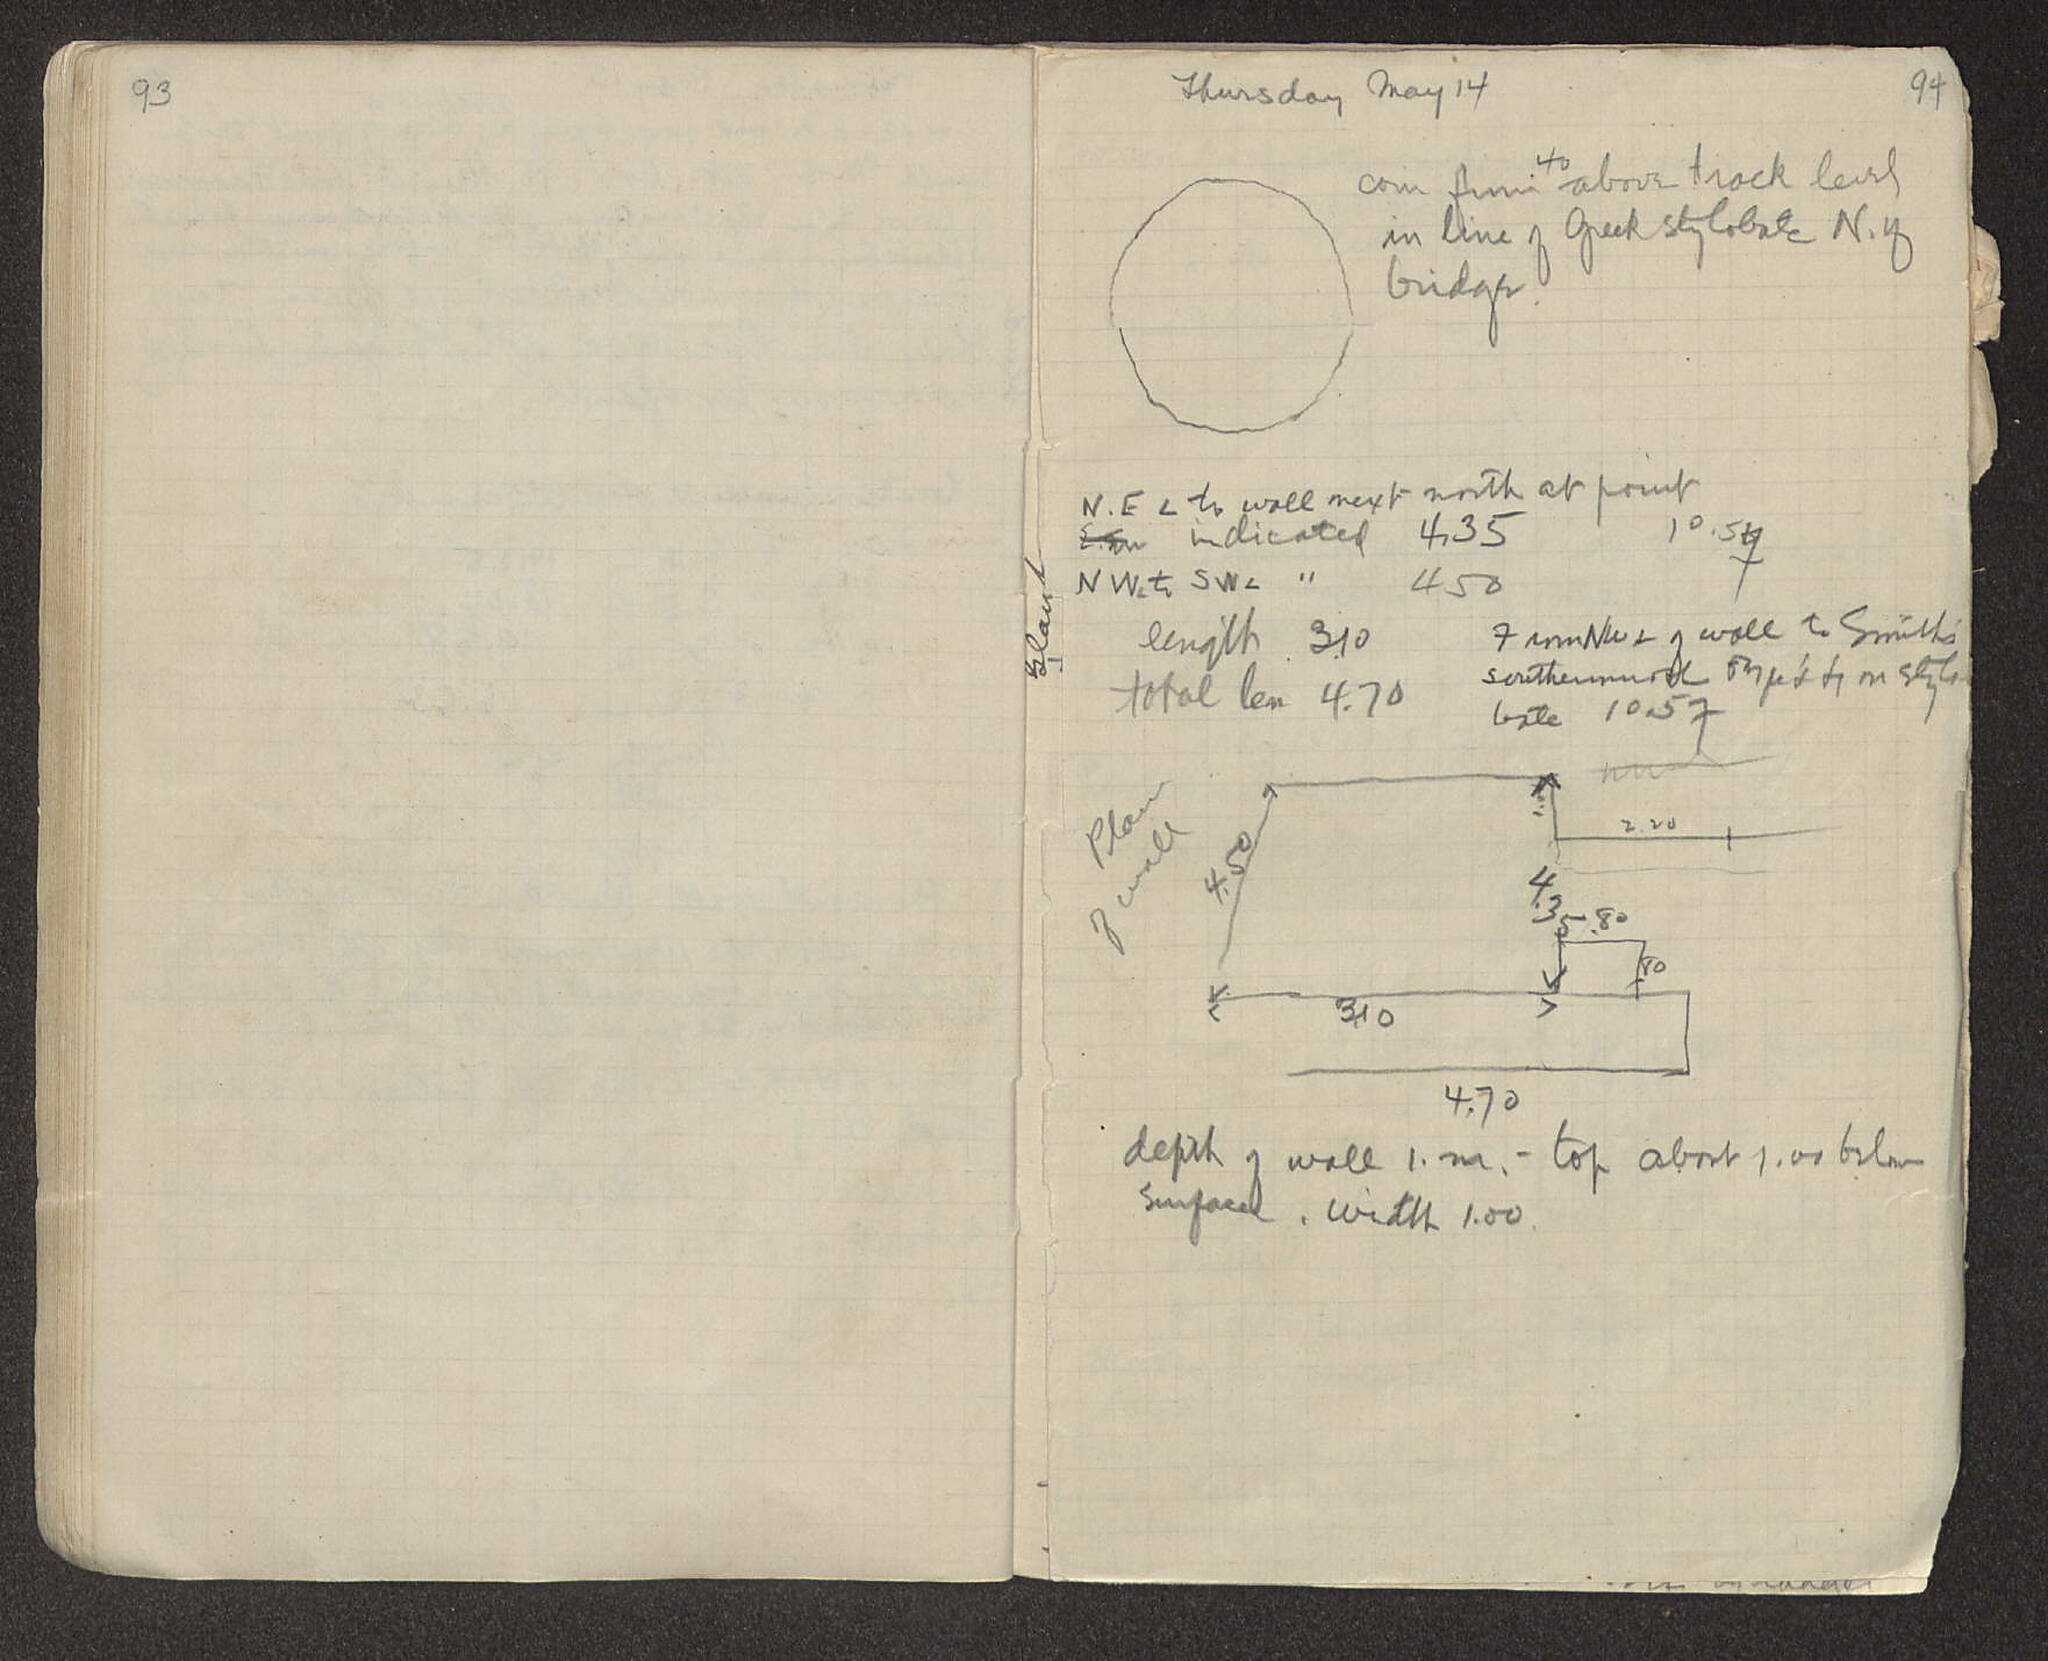 93
Thursday May 14
94
coin from 40 above track level
in line of Greek stylobate N. of
bridge.
N.E ∠ to wall next north at point
indicated 4.35
10.57
NW∠ to SW∠ " 450
length 3.10
total len 4.70
From NW ∠ of wall to Smith's
southernmost on stylo-
bate 10.57
Blank
Plan
of wall
4.50
2.20
4.35
.80
.80
3.10
4.70
depth of wall 1. m. - top about 1.00 below
surface. Width 1.00.